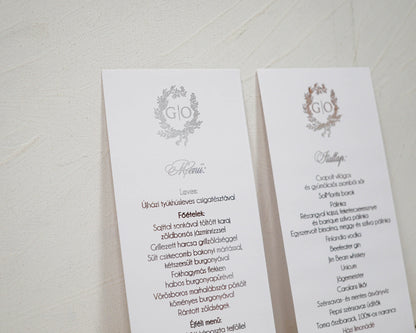 G|O
Menü:
Leves:
Újházi tyúkhúsleves csigatésztával
Főételek:
Sajttal sonkával töltött karaj
zöldborsós jázminrizzsel
Grillezett harcsa grillzöldséggel
Sült csirkecomb bakonyi mártással,
kétszersült burgonyával
Fokhagymás flekken
habos burgonyapürével
Vörösboros marhalábszár pörkölt
köményes burgonyával
Rántott zöldségek
Éjféli menü:
tejföllel
G|O
Itallap:
Csapolt világos
és gyümölcsös szomból sör
SolMontis borok
Pálinka
Rézangyal kajszi, feketecseresznye
és barrique szilva pálinka
Egyszervolt bodza, meggy és szilva pálinka
Finlandia vodka
Beefeater gin
Jim Bean whiskey
Unicum
Jägermeister
Carolans likőr
Szénsavas- és mentes ásványvíz
Pepsi szénsavas üdítők
Toma őszibarack, 100%-os narancs
Házi limonádé